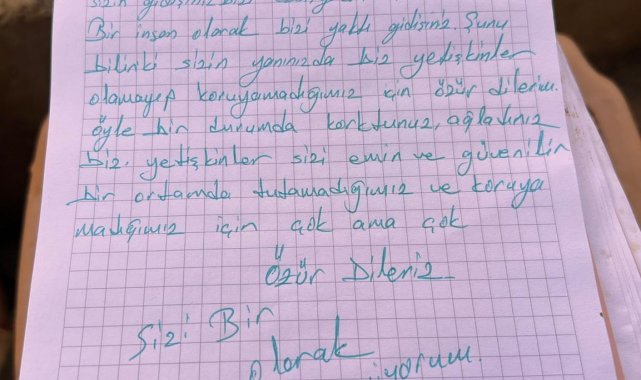 sizin gidişiniz bizi
Bir insan olarak bizi yaktı gidişiniz. Şunu
bilinki sizin yanınızda biz yetişkinler
olamayıp koruyamadığımız için özür dilerim.
öyle bir durumda korktunuz, ağladınız
biz yetişkinler sizi emin ve güvenilir
bir ortamda tutamadığımız ve koruya
madığımız için çok ama çok
Özür Dileriz
Sizi Bir
olarak
iyorum.